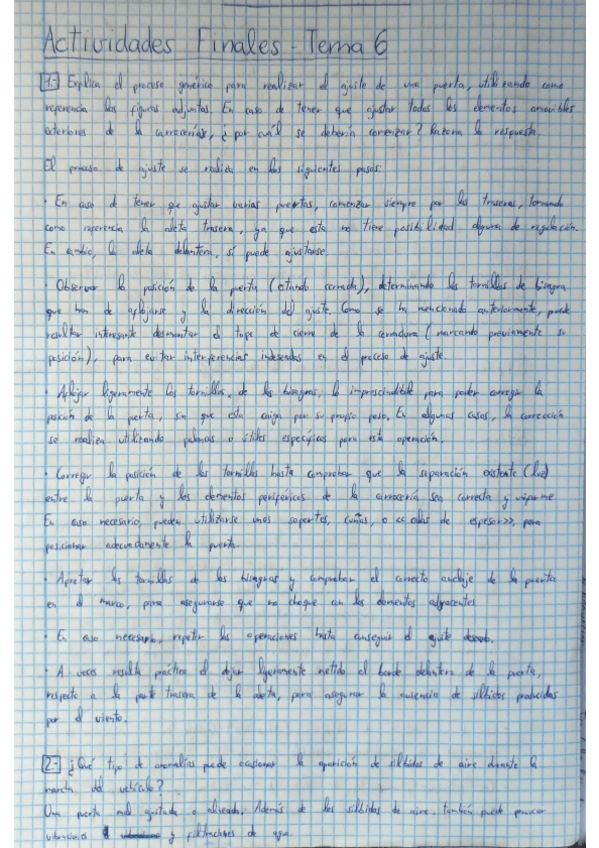 Actividades Finales - Tema 6
1- Explica el proceso genérico para realizar el ajuste de una puerta, utilizando como
referencia las figuras adjuntas. En caso de tener que ajustar todos los elementos amovibles
exteriores de la carrocería, ¿por cuál se debería comenzar? Razona la respuesta.
El proceso de ajuste se realiza en los siguientes pasos:
· En caso de tener que ajustar varias puertas, comenzar siempre por las traseras, tomando
como referencia la aleta trasera, ya que esta no tiene posibilidad alguna de regulación.
En cambio, la aleta delantera, sí puede ajustarse.
· Observar la posición de la puerta (estando cerrada), determinando los tornillos de bisagra
que han de aflojarse y la dirección del ajuste. Como se ha mencionado anteriormente, puede
resultar interesante desmontar el tope de cierre de la cerradura (marcando previamente su
posición), para evitar interferencias indeseadas en el proceso de ajuste.
· Aflojar ligeramente los tornillos, de las bisagras, lo imprescindible para poder corregir la
posición de la puerta, sin que esta caiga por su propio peso. En algunos casos, la corrección
se realiza utilizando palancas o útiles específicos para esta operación.
· Corregir la posición de los tornillos hasta comprobar que la separación existente (luz)
entre la puerta y los elementos periféricos de la carrocería sea correcta y uniforme
En caso necesario, pueden utilizarse unos soportes, cuñas, o << calas de espesor>>, para
posicionar adecuadamente la puerta.
· Apretar los tornillos de las bisagras y comprobar el correcto anclaje de la puerta
en el marco, para asegurarse que no choque con los elementos adyacentes.
· En caso necesario, repetir las operaciones hasta conseguir el ajuste
· A veces resulta práctico el dejar ligeramente metido el borde delantero de la puerta,
respecto a la parte trasera de la aleta, para asegurar la ausencia de silbidos producidos
por el viento.
2- ¿Qué tipo de anomalías puede ocasionar la aparición de silbidos de aire durante la
marcha del vehículo?
Una puerta mal ajustada o alineada. Además de los silbidos de aire, también puede provocar
vibraciones y filtraciones de agua.